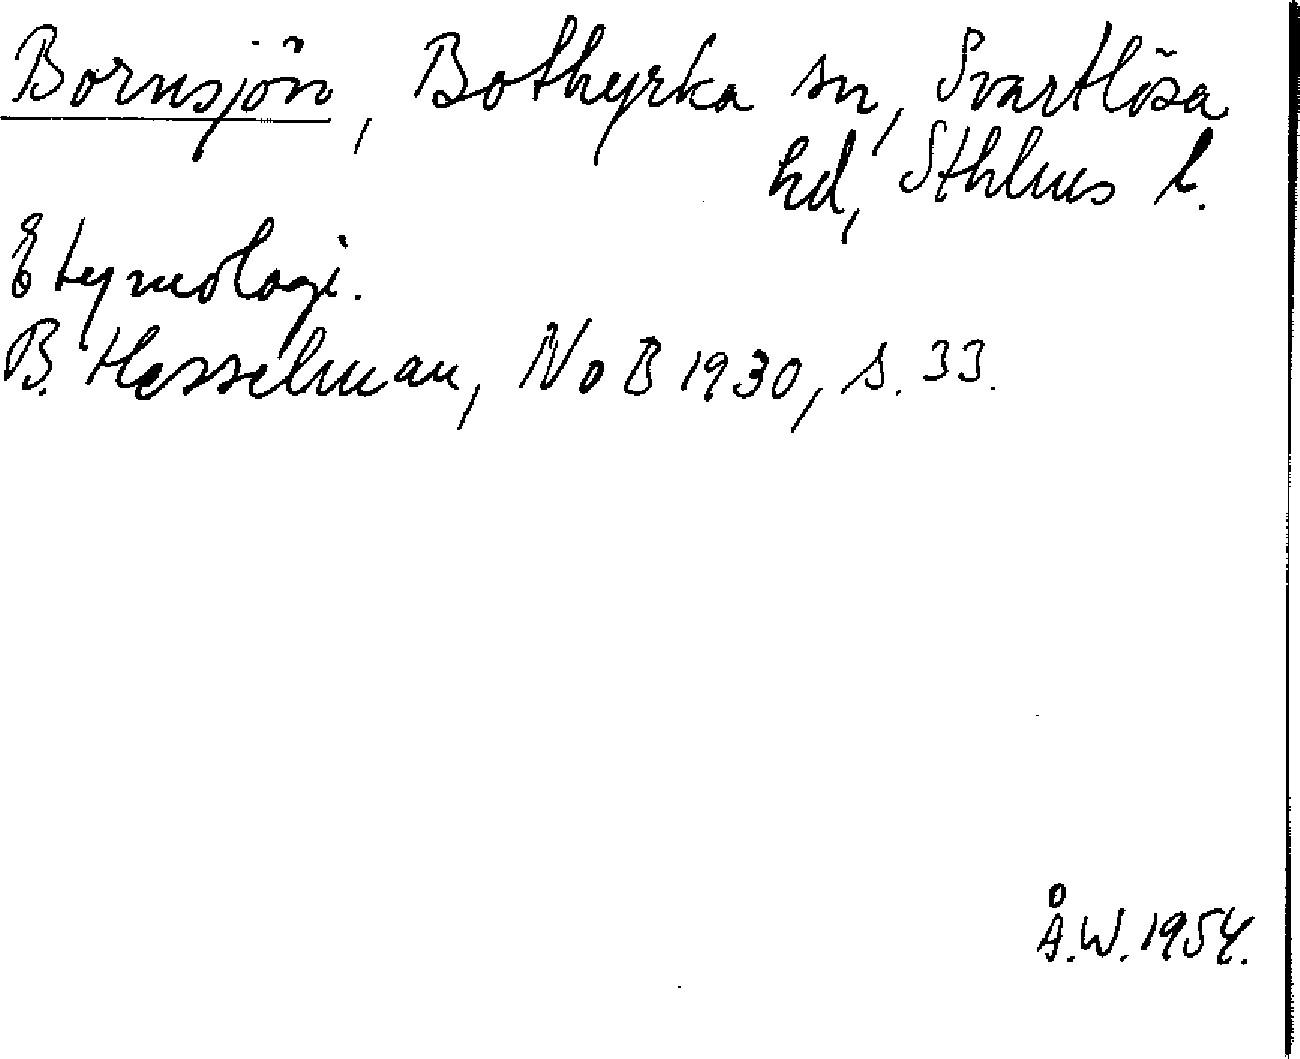 Bornsjön, Bothyrka sn, Svartlösa
hd, Sthlms l.
Etymologi.
B. Hesselman, NoB 1930, s. 33.
Å.W. 1954.